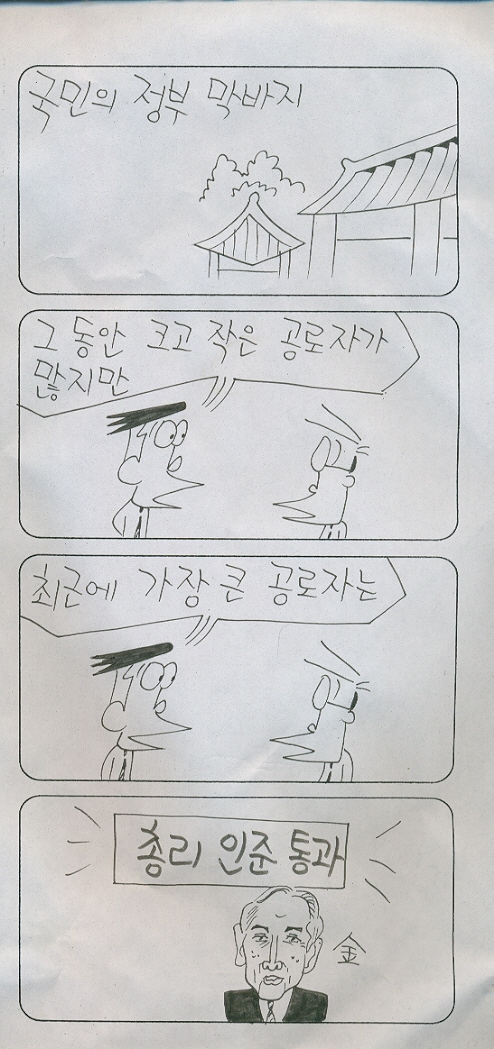 국민의 정부 막바지
그 동안 크고 작은 공로자가
많지만
최근에 가장 큰 공로자는
총리 인준 통과
金